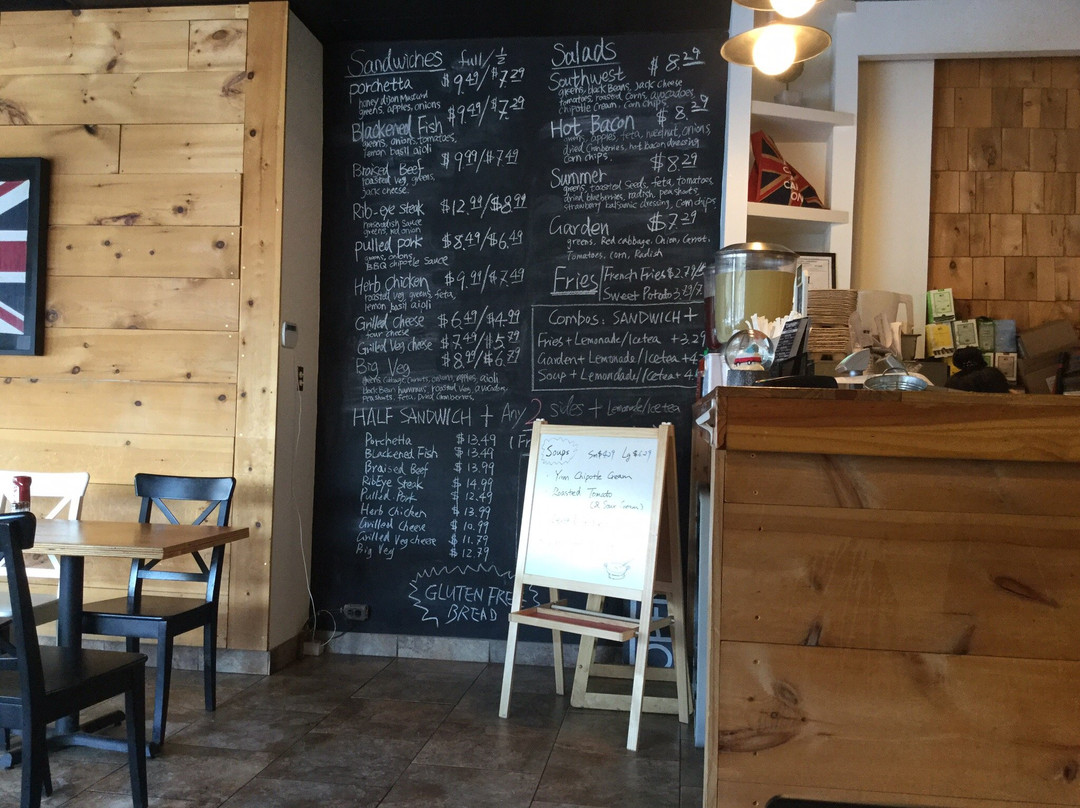 Sandwiches full/½
porchetta $9.49/$7.29
honey dijon mustard
greens, apples, onions
$9.49/$7.29
Blackened Fish
greens, onions, tomatoes,
lemon basil aioli
Braised Beef $9.99/$7.49
roasted veg, greens,
jack cheese.
Rib-eye steak $12.99/$8.99
horseradish sauce
greens, red onion
pulled pork $8.49/$6.49
greens, onions,
BBQ chipotle sauce
Herb chicken $9.99/$7.49
roasted veg, greens, feta,
lemon basil aioli
Grilled cheese $6.49/$4.99
four cheese
Grilled Veg cheese $7.49/$5.79
Big Veg $8.99/$6.79
black bean hummus, roasted veg, avocadoes,
peashoots, Feta, Dried cranberries,
HALF SANDWICH + Any 2 sides + Lemonade/Icetea
Porchetta $13.49
Blackened Fish $13.49
Braised Beef $13.99
RibEye Steak $14.99
Pulled Pork $12.49
Herb chicken $13.99
Grilled Cheese $10.99
Grilled Veg cheese $11.79
Big Veg $12.79
GLUTEN FREE
BREAD
Salads
Southwest $8.29
greens, black Beans, Jack cheese
tomatoes, roasted corns, avocadoes,
chipotle Cream. Corn chips.
$8.29
Hot Bacon
apples, feta, onions
dried Cranberries, hot bacon dressing
Corn chips.
$8.29
Summer
greens, toasted seeds, feta, tomatoes
dried blueberries, radish, pea shoots,
strawberry balsamic dressing, corn chips
Garden $7.29
greens, Red cabbage, Onion, Carrot,
Tomatoes, corn, Radish
Fries French Fries $2.79/
Sweet Potato
Combos: SANDWICH +
Fries + Lemonade/Icetea +3.29
Garden + Lemonade/Icetea +4
Soup + Lemondade/Icetea + 4
Soups Sm $4.29 Lg $6.29
Yam Chipotle Cream
Roasted Tomato